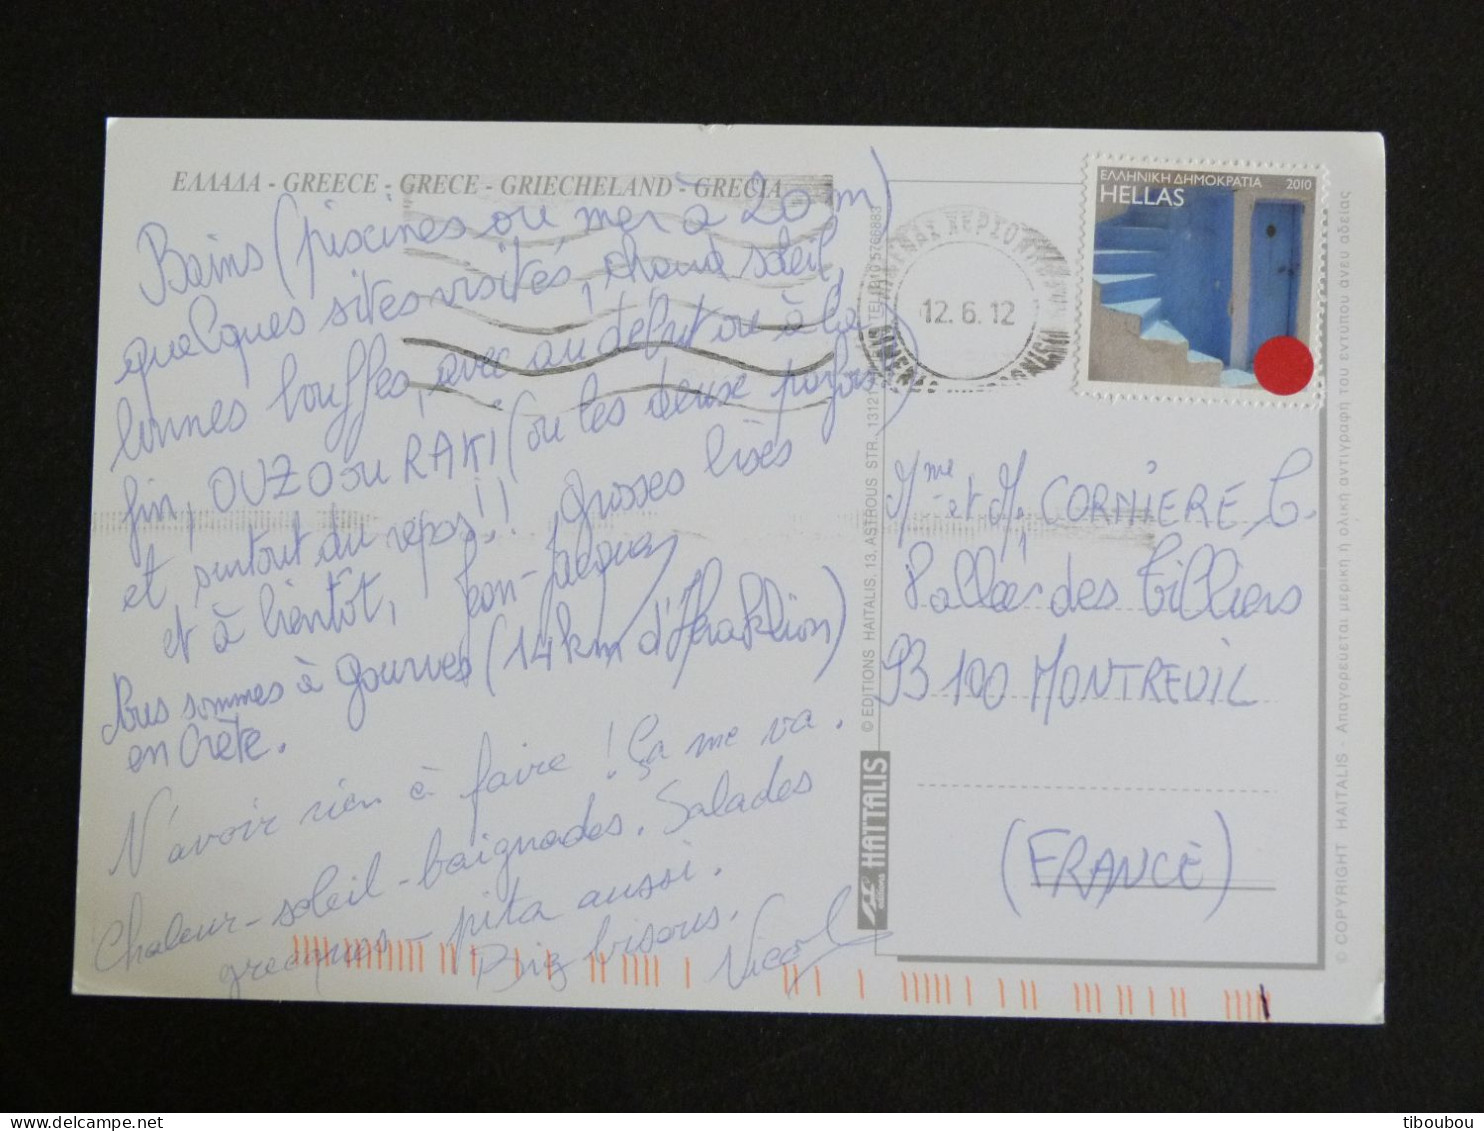 ΕΛΛΑΔΑ - GREECE - GRECE - GRIECHELAND - GRECIA
Bains (piscines ou mer à 20 m)
quelques sites visités, chaud soleil,
bonnes bouffes, avec au début ou à la
fin, OUZO ou RAKI (ou les deux parfois)
et surtout du repos!! Grosses bises
et à bientôt, Jean-Jacques
Nous sommes à Gourves (14km d'Heraklion)
en Crète.
N'avoir rien à faire ! Ça me va.
Chaleur-soleil-baignades. Salades
grecques - pita aussi.
Biz bisous. Nicole
ΕΛΛΗΝΙΚΗ ΔΗΜΟΚΡΑΤΙΑ 2010
HELLAS
12.6.12
Mme et M. CORNIÈRE G.
allée des Tilliers
93100 MONTREUIL
(FRANCE)
© EDITIONS HAITALIS, 13, ASTROUS STR., 13121
HAITALIS
editions
© COPYRIGHT HAITALIS - Απαγορεύεται μερική ή ολική αντιγραφή του εντύπου άνευ αδείας
tiboubou